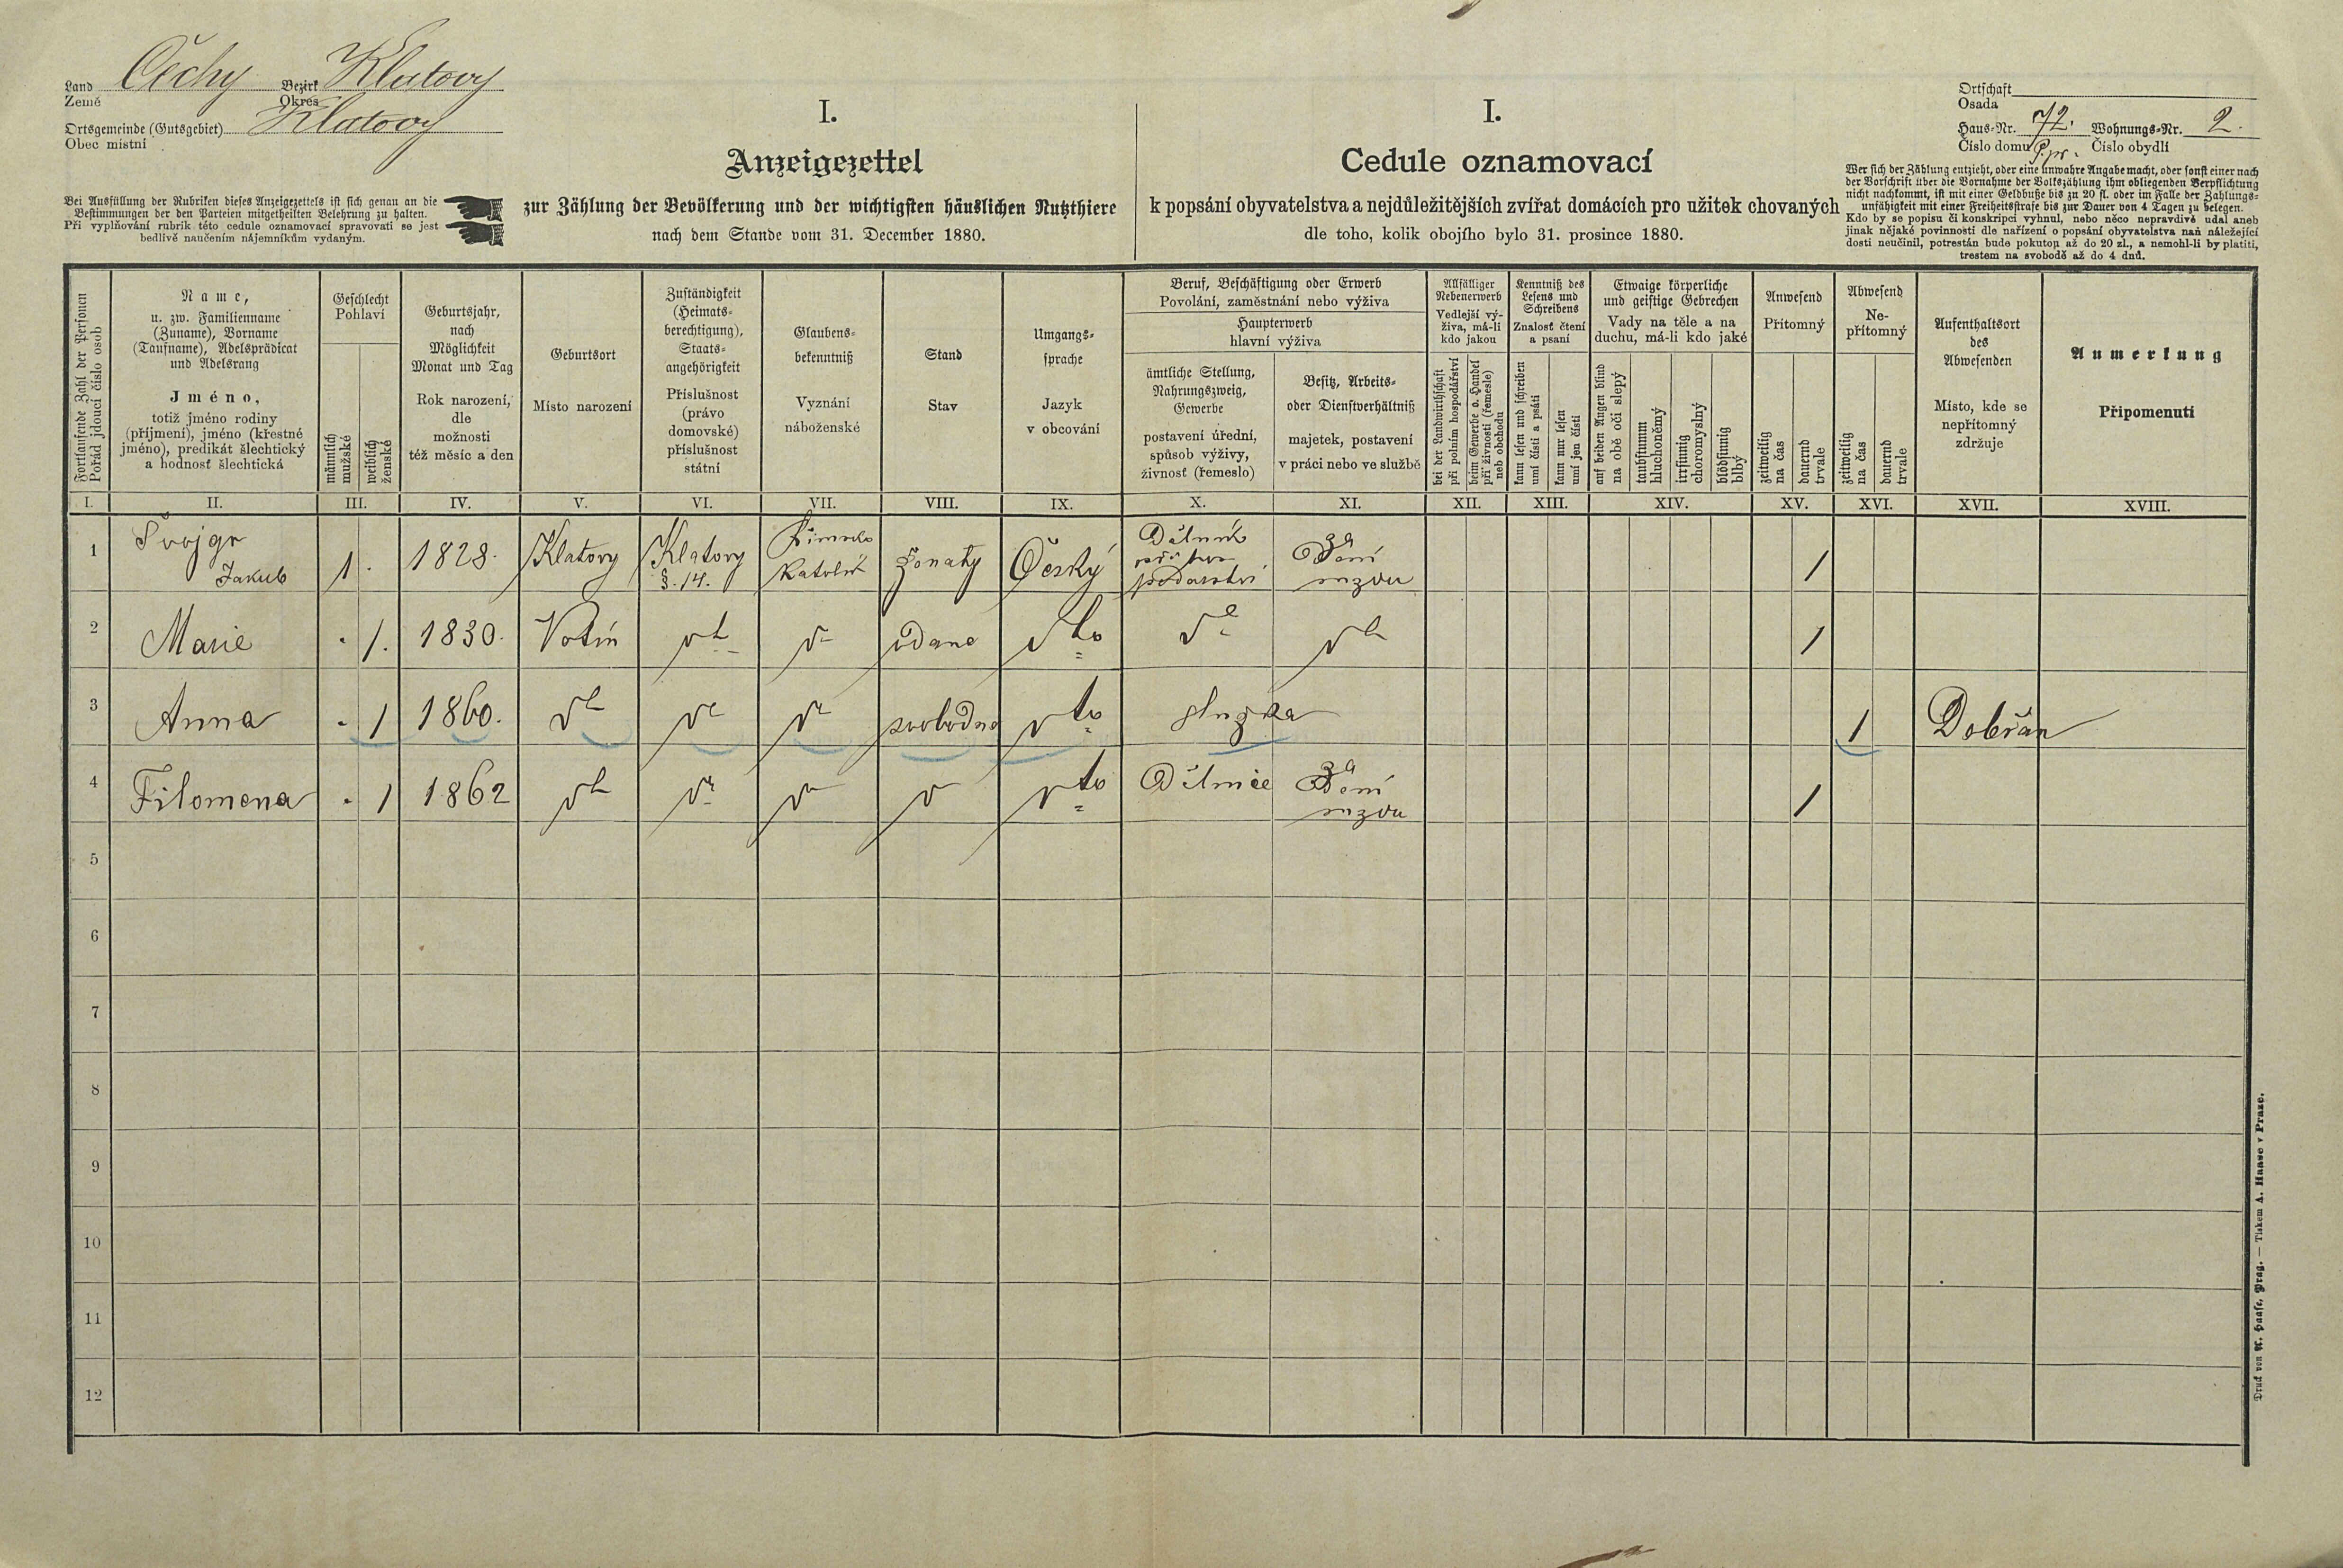 Land Čechy Bezirk Klatovy
Země Okres
Ortsgemeinde (Gutsgebiet) Klatovy
Obec místní
Bei Ausfüllung der Rubriken dieses Anzeigezettels ist sich genau an die
Bestimmungen der den Parteien mitgetheilten Belehrung zu halten.
Při vyplňování rubrik této cedule oznamovací spravovati se jest
bedlivě naučením nájemníkům vydaným.
I.
Anzeigezettel
zur Zählung der Bevölkerung und der wichtigsten häuslichen Nutzthiere
nach dem Stande vom 31. December 1880.
I.
Cedule oznamovací
k popsání obyvatelstva a nejdůležitějších zvířat domácích pro užitek chovaných
dle toho, kolik obojího bylo 31. prosince 1880.
Ortschaft
Osada
Haus-Nr. 72. Wohnungs-Nr. 2.
Číslo domu P. pr. Číslo obydlí
Wer sich der Zählung entzieht, oder eine unwahre Angabe macht, oder sonst einer nach
der Vorschrift über die Vornahme der Volkszählung ihm obliegenden Verpflichtung
nicht nachkommt, ist mit einer Geldbuße bis zu 20 fl. oder im Falle der Zahlungs-
unfähigkeit mit einer Freiheitsstrafe bis zur Dauer von 4 Tagen zu belegen.
Kdo by se popisu či konskripci vyhnul, nebo něco nepravdivě udal aneb
jinak nějaké povinnosti dle nařízení o popsání obyvatelstva naň náležející
dosti neučinil, potrestán bude pokutou až do 20 zl., a nemohl-li by platiti,
trestem na svobodě až do 4 dnů.
Fortlaufende Zahl der Personen
Pořád jdoucí číslo osob
Name,
u. zw. Familienname
(Zuname), Vorname
(Taufname), Adelsprädicat
und Adelsrang
Jméno,
totiž jméno rodiny
(příjmení), jméno (křestné
jméno), predikát šlechtický
a hodnosť šlechtická
Geschlecht
Pohlaví
männlich
mužské
weiblich
ženské
Geburtsjahr,
nach
Möglichkeit
Monat und Tag
Rok narození,
dle
možnosti
též měsíc a den
Geburtsort
Místo narození
Zuständigkeit
(Heimats-
berechtigung),
Staats-
angehörigkeit
Příslušnost
(právo
domovské)
příslušnost
státní
Glaubens-
bekenntniß
Vyznání
náboženské
Stand
Stav
Umgangs-
sprache
Jazyk
v obcování
Beruf, Beschäftigung oder Erwerb
Povolání, zaměstnání nebo výživa
Haupterwerb
hlavní výživa
ämtliche Stellung,
Nahrungszweig,
Gewerbe
postavení úřední,
spůsob výživy,
živnosť (řemeslo)
Besitz, Arbeits-
oder Dienstverhältniß
majetek, postavení
v práci nebo ve službě
Allfälliger
Nebenerwerb
Vedlejší vý-
živa, má-li
kdo jakou
bei der Landwirthschaft
při polním hospodářství
beim Gewerbe o. Handel
při živnosti (řemesle)
neb obchodu
Kenntniß des
Lesens und
Schreibens
Znalosť čtení
a psaní
kann lesen und schreiben
umí čísti a psáti
kann nur lesen
umí jen čísti
Etwaige körperliche
und geistige Gebrechen
Vady na těle a na
duchu, má-li kdo jaké
auf beiden Augen blind
na obě oči slepý
taubstumm
hluchoněmý
irrsinnig
choromyslný
blödsinnig
blbý
Anwesend
Přítomný
zeitweilig
na čas
dauernd
trvale
Abwesend
Ne-
přítomný
zeitweilig
na čas
dauernd
trvale
Aufenthaltsort
des
Abwesenden
Místo, kde se
nepřítomný
zdržuje
Anmerkung
Připomenutí
I. II. III. IV. V. VI. VII. VIII. IX. X. XI. XII. XIII. XIV. XV. XVI. XVII. XVIII.
1 Švojgr Jakub 1 . 1828. Klatovy Klatovy §. 14. Římsko Katolík ženatý Český Dělník při hospodářství za Dení mzdu 1
2 Marie . 1. 1830. Votín dto dto vdané dto dto dto 1
3 Anna . 1 1860. dto dto dto svobodna dto služka 1 Dobřan
4 Filomena . 1 1862 dto dto dto dto dto Dělnice za Dení mzdu 1
5
6
7
8
9
10
11
12
Druck von A. Haase, Prag. — Tiskem A. Haase v Praze.